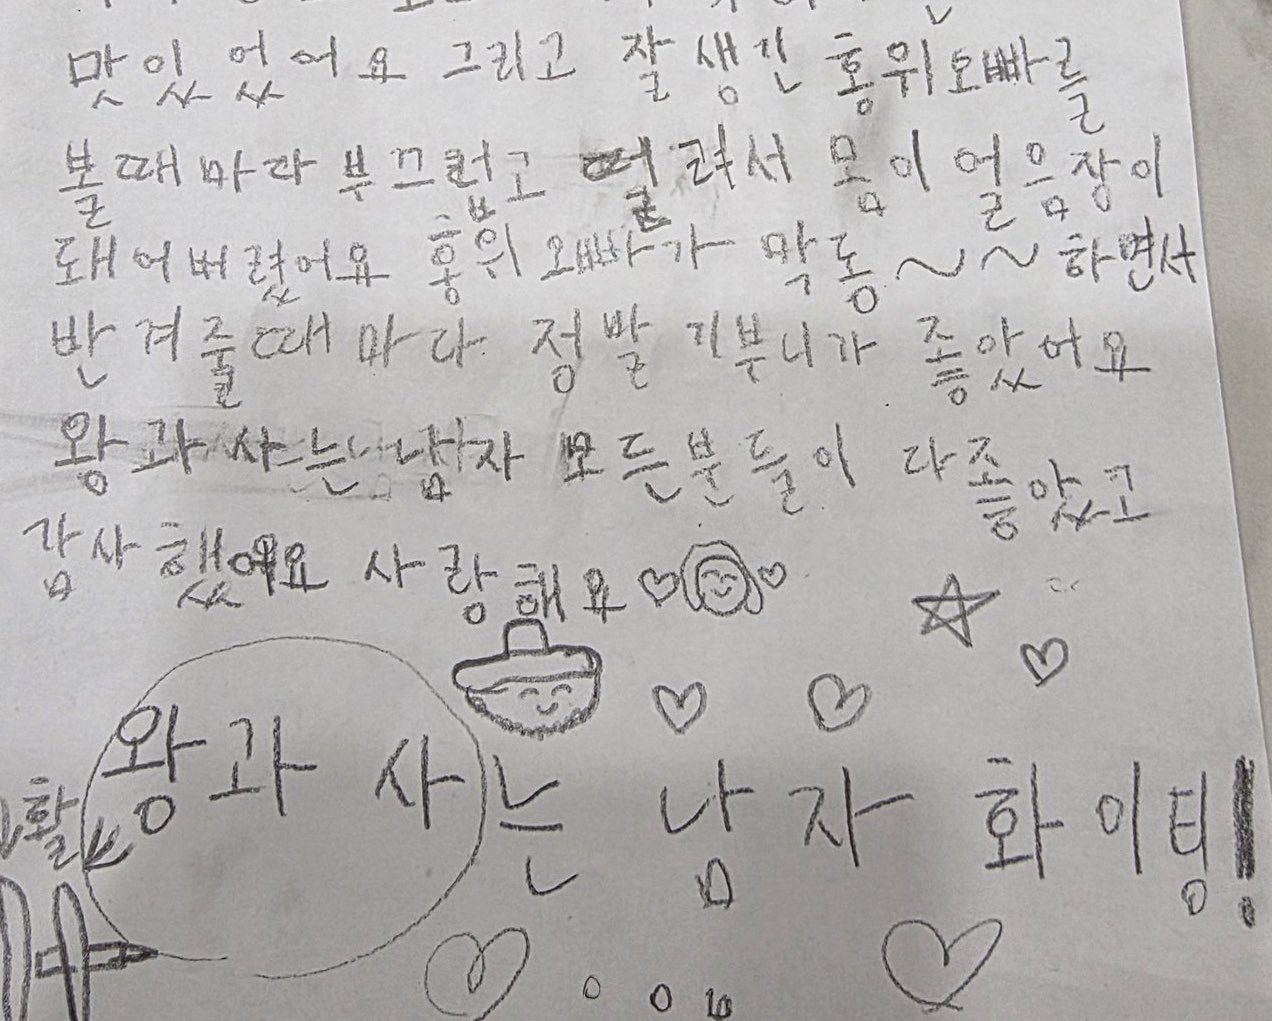 맛있었어요 그리고 잘생긴 홍위오빠를
볼때마라 부끄럽고 떨려서 몸이 얼음장이
돼어버렸어요 홍위 오빠가 막동~~하면서
반겨줄때 마다 정말 기부니가 좋았어요
왕과 사는 남자 모든분들이 다좋았고
감사했어요 사랑해요
왕과 사는 남자 화이팅!
활